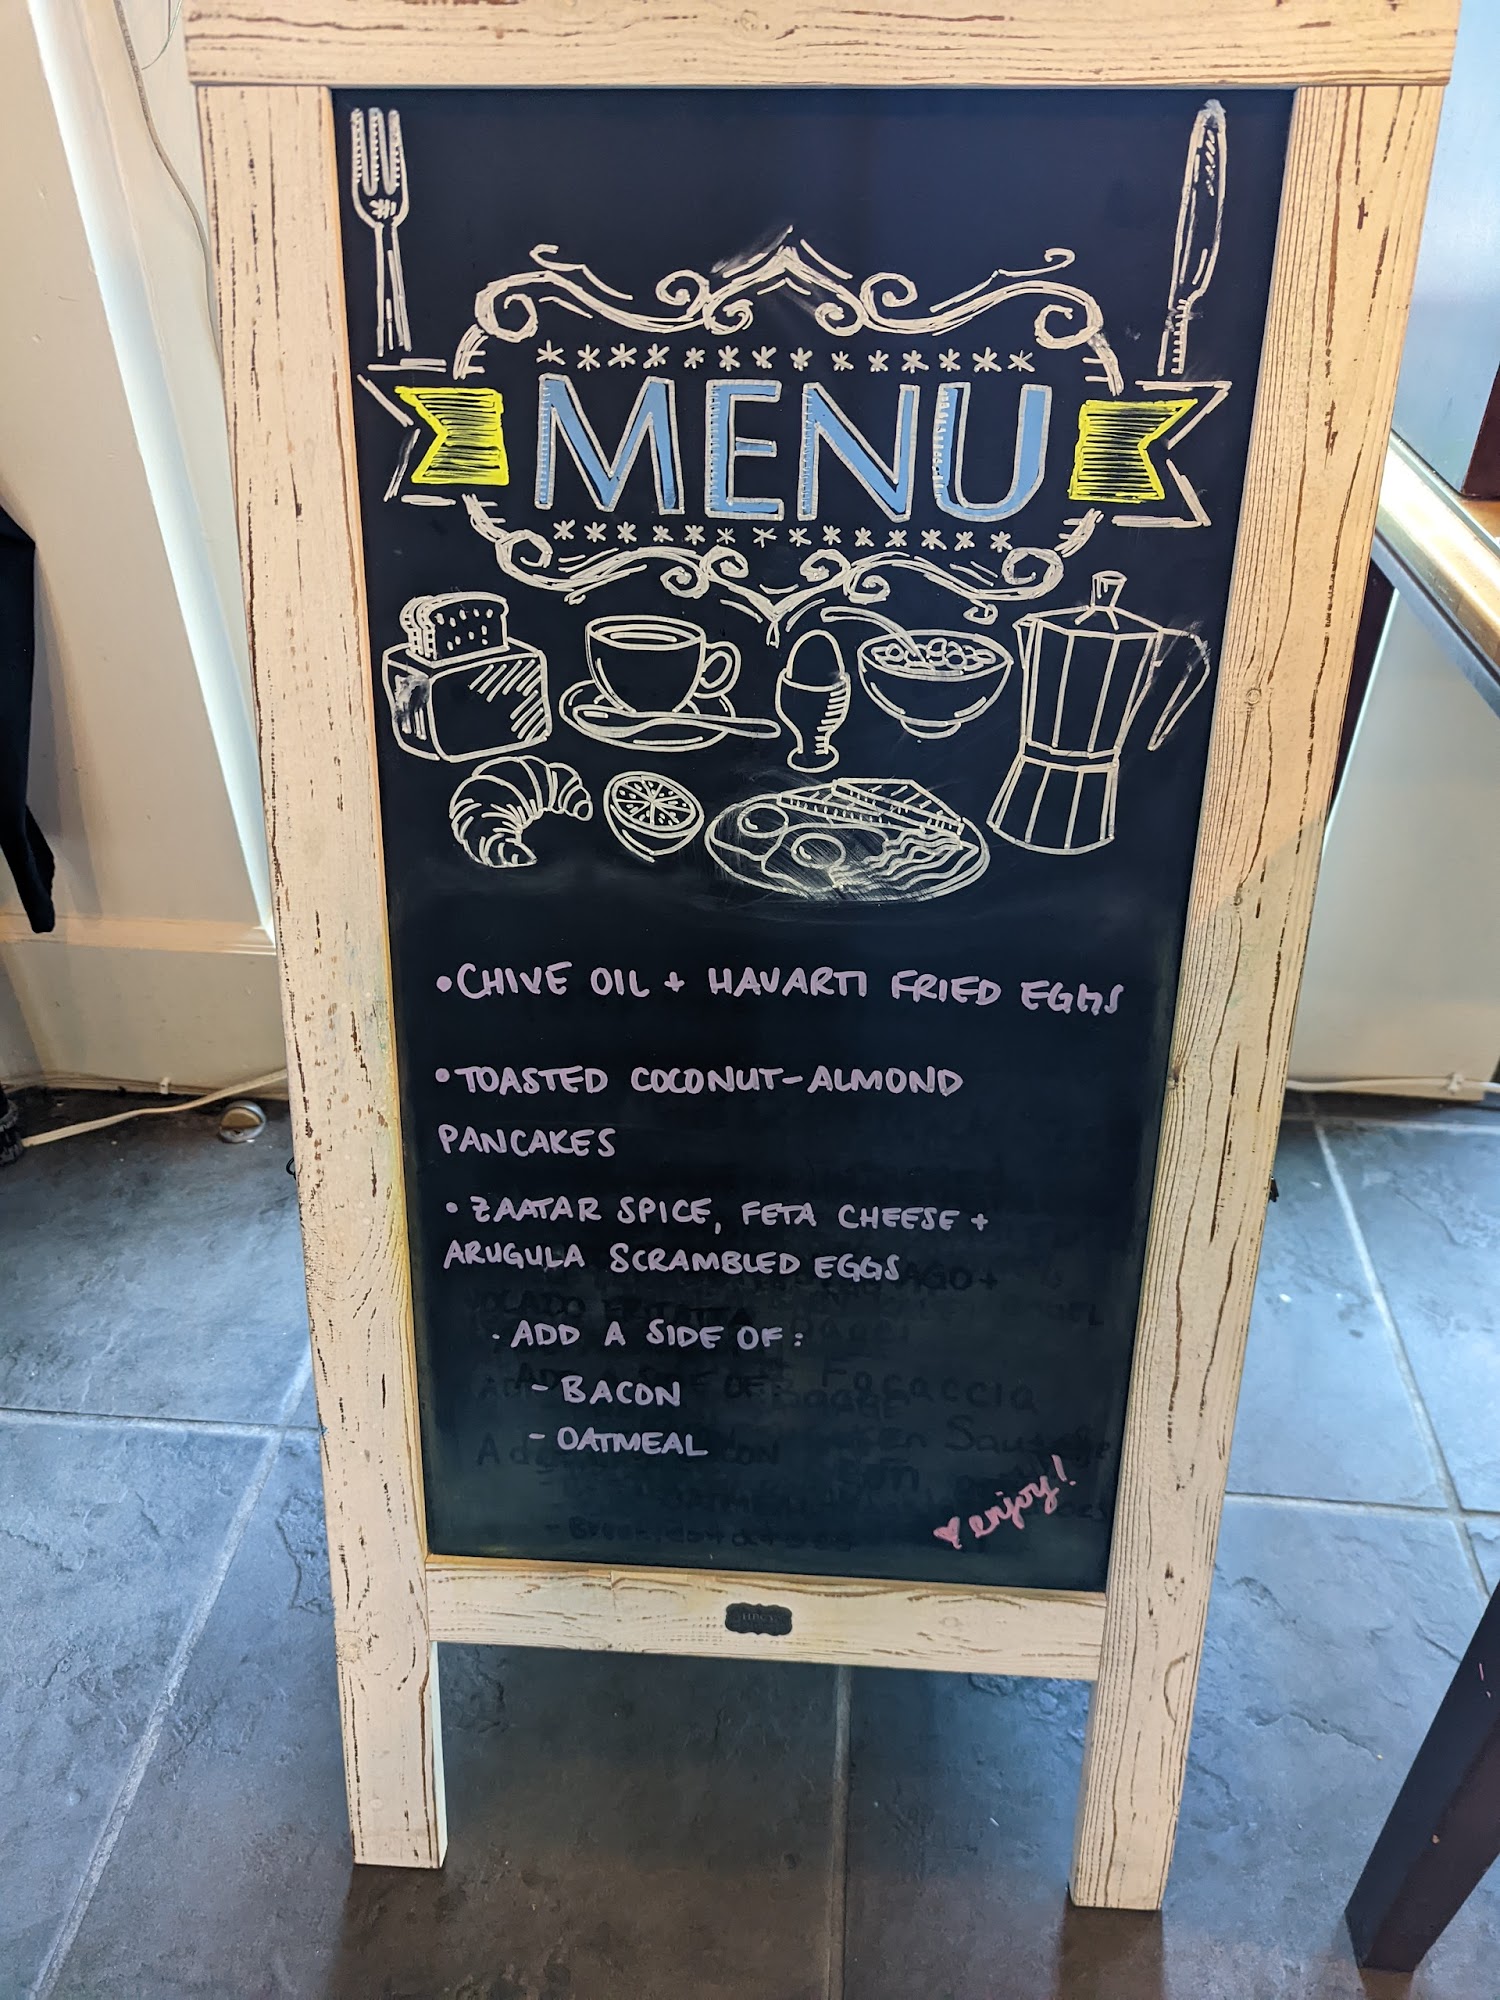 MENU
• CHIVE OIL + HAVARTI FRIED EGGS
• TOASTED COCONUT-ALMOND
PANCAKES
• ZAATAR SPICE, FETA CHEESE +
ARUGULA SCRAMBLED EGGS
· ADD A SIDE OF:
- BACON
- OATMEAL
♥ enjoy!